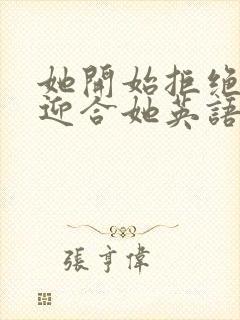 她開始拒絕
迎合她英語
張亨偉